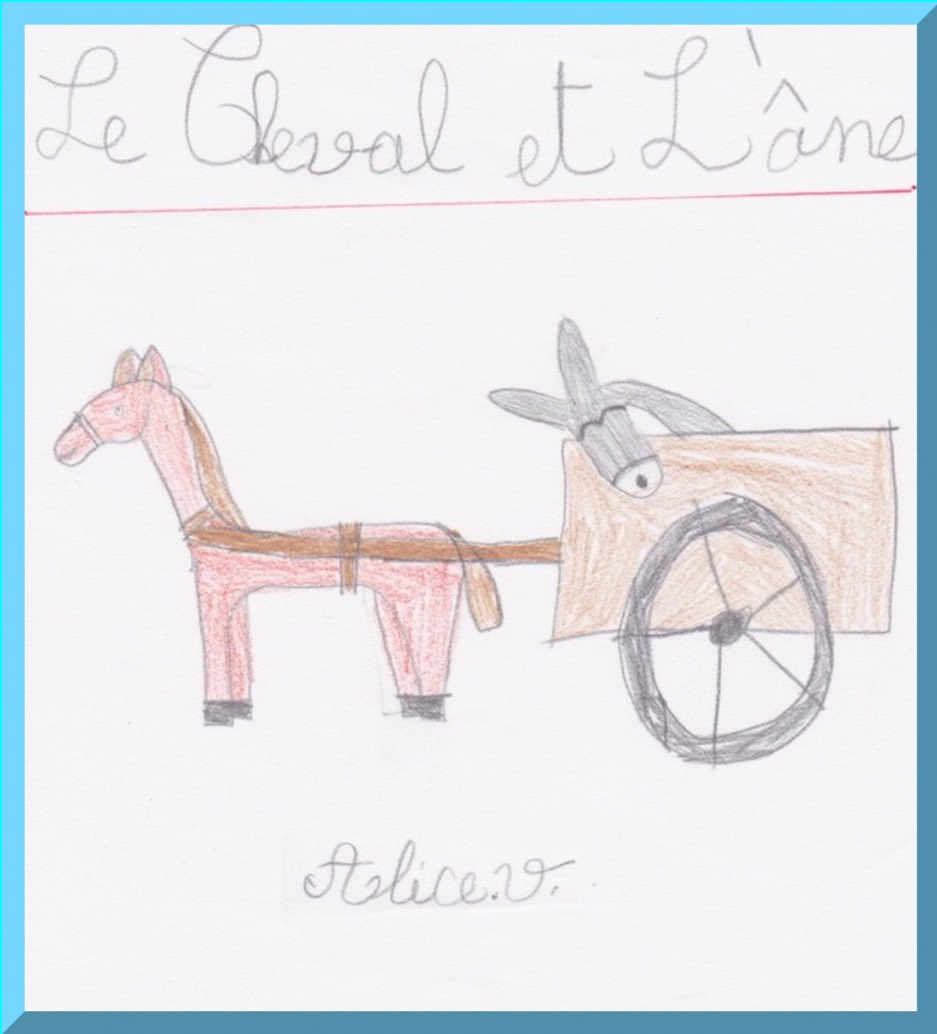 Le Cheval et L'âne
Alice.V.